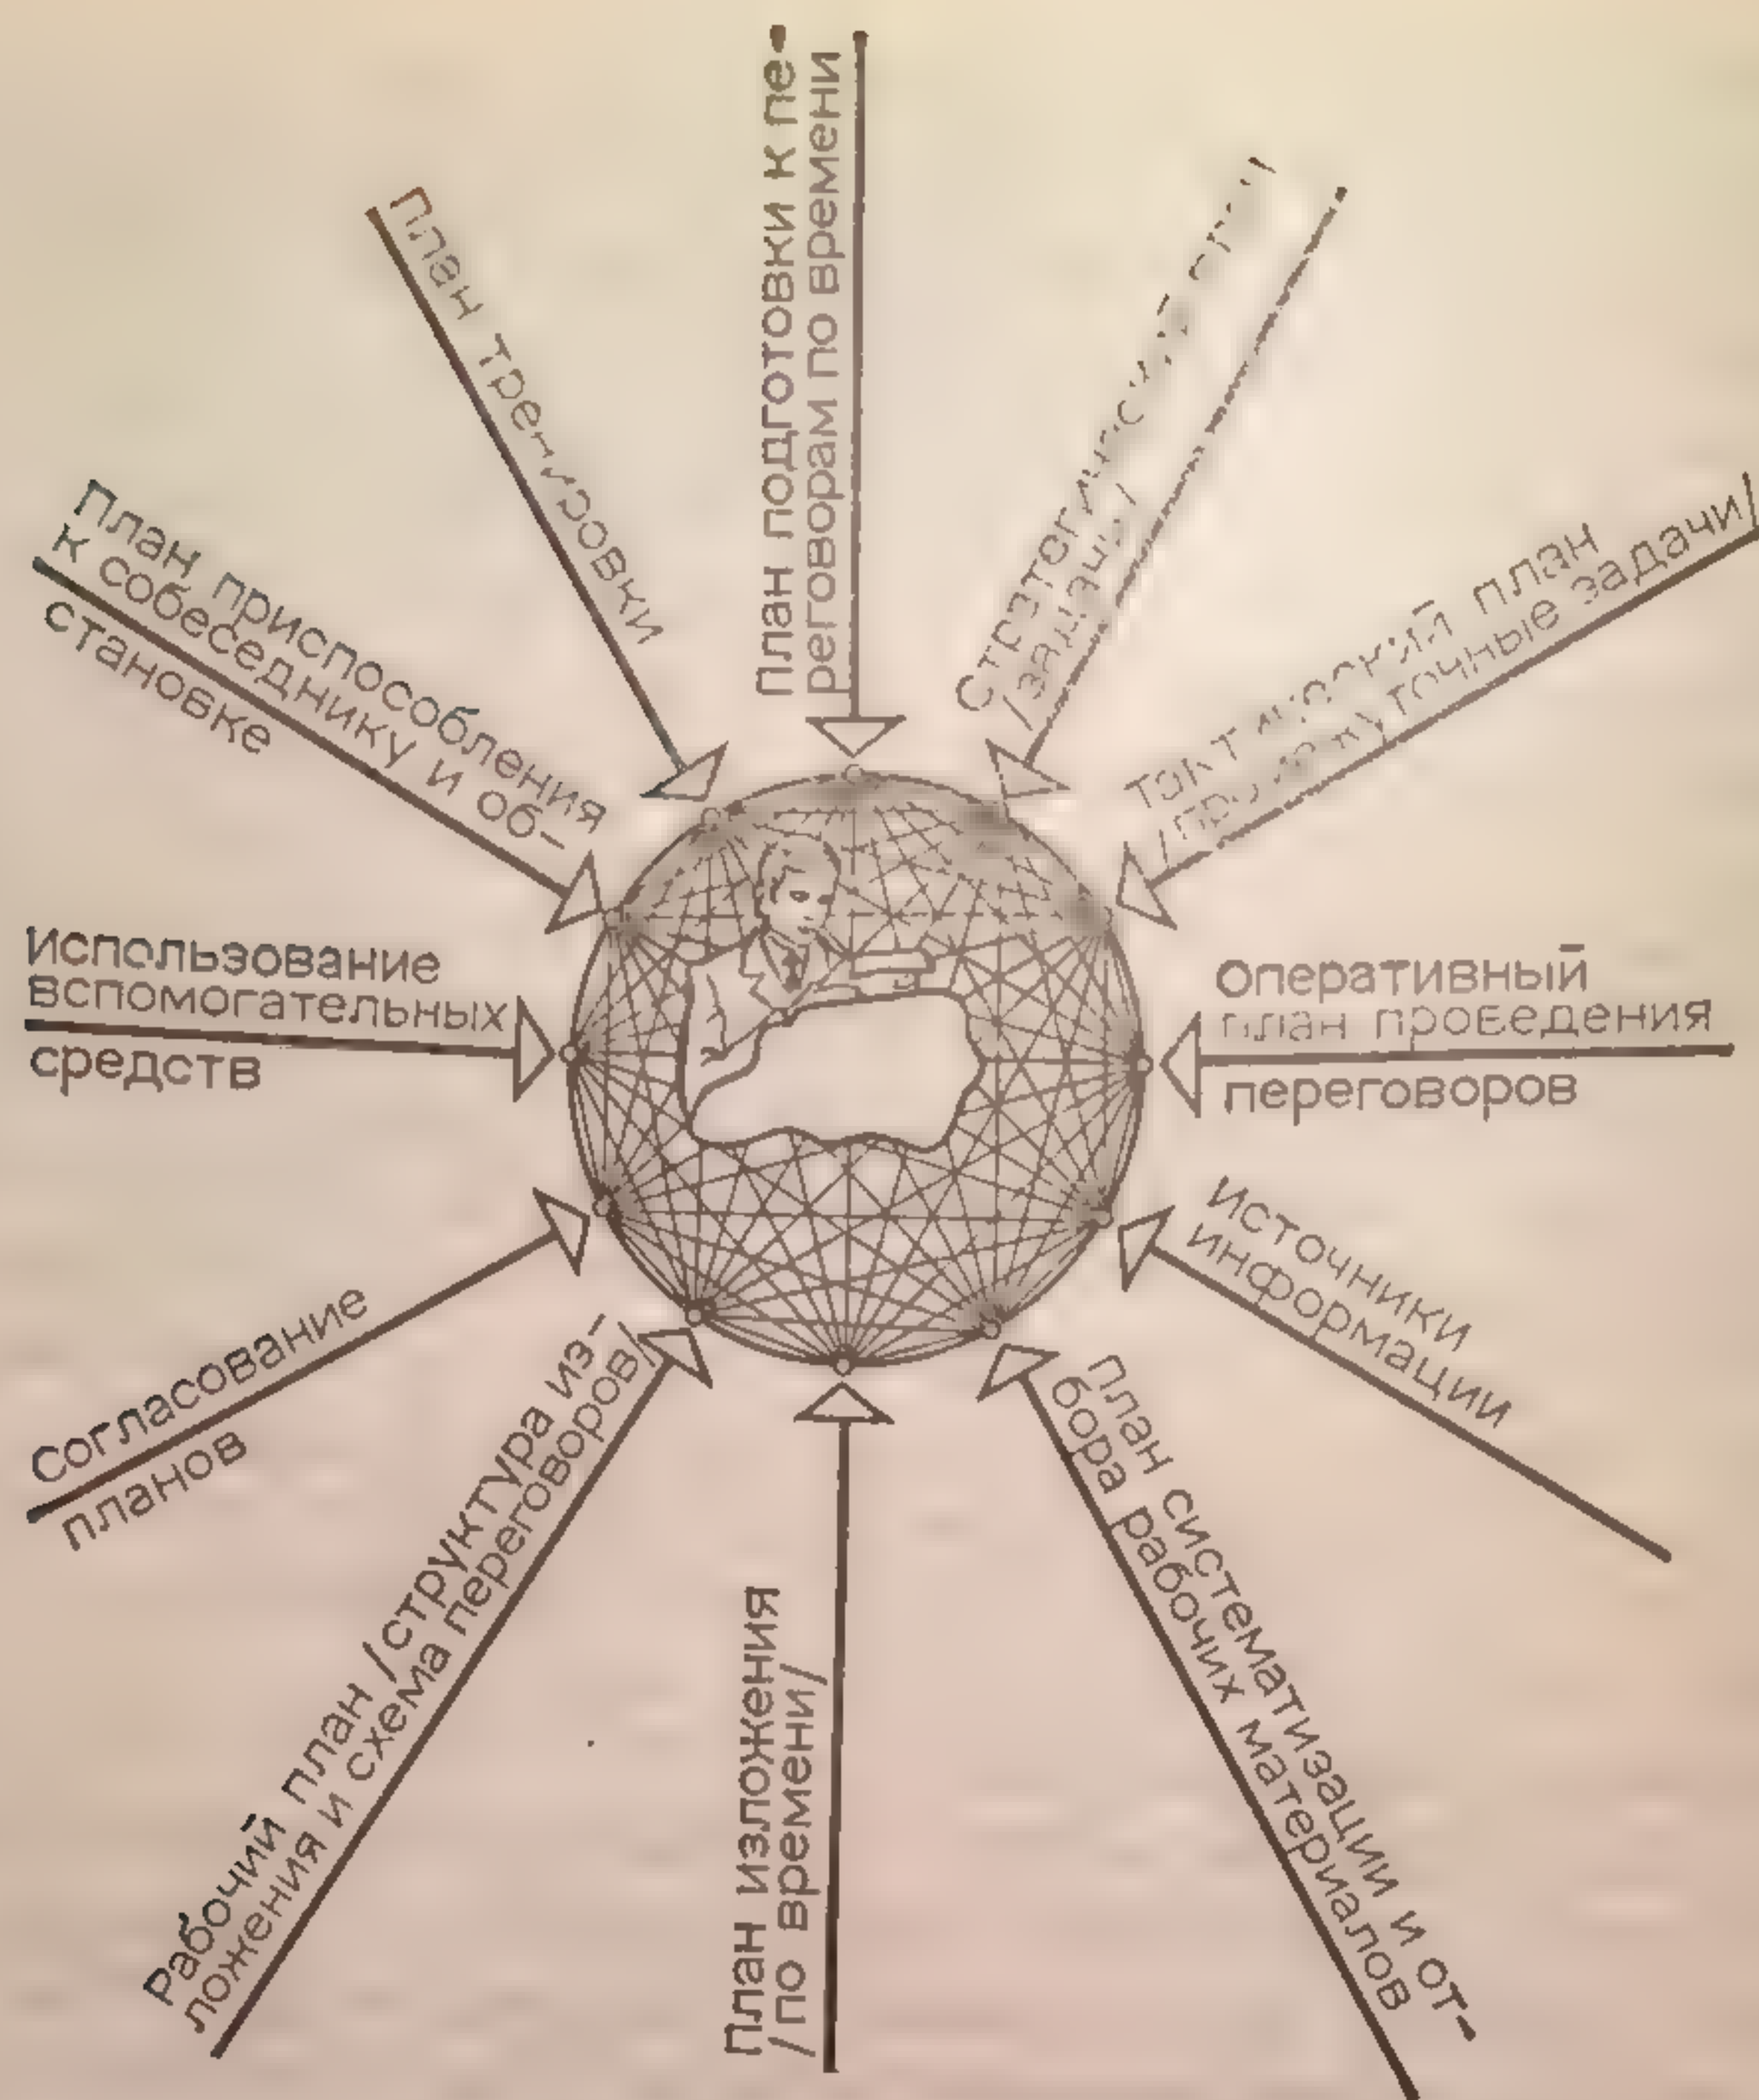 План подготовки к пе-
реговорам по времени
Стратегический
/задачи/
Тактический план
/промежуточные задачи/
Оперативный
план проведения
переговоров
Источники
информации
План систематизации и от-
бора рабочих материалов
План изложения
/по времени/
Рабочий план /структура из-
ложения и схема переговоров/
Согласование
планов
Использование
вспомогательных
средств
План приспособления
к собеседнику и об-
становке
План тренировки